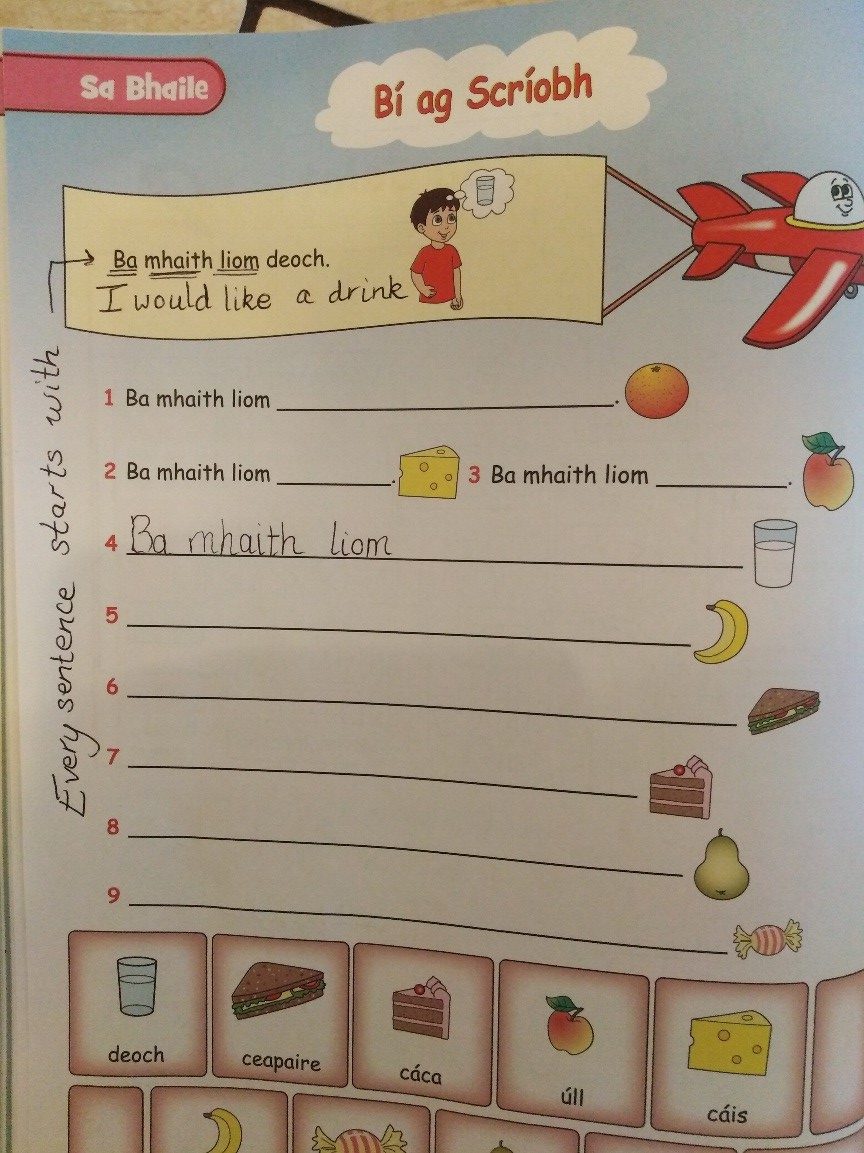 Sa Bhaile
Bí ag Scríobh
Ba mhaith liom deoch.
I would like a drink
Every sentence starts with
1 Ba mhaith liom ____.
2 Ba mhaith liom ____.
3 Ba mhaith liom ____.
4 Ba mhaith liom
5
6
7
8
9
deoch
ceapaire
cáca
úll
cáis